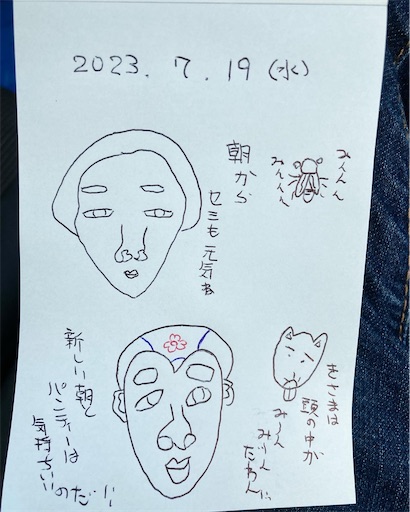 2023. 7. 19 (水)
朝から
セミも元気ね
みーんみーん
みーんみーん
新しい朝と
パンティーは
気持ちいい
のだ!!
きさまは
頭の中が
みーん
みーん
だわん!!